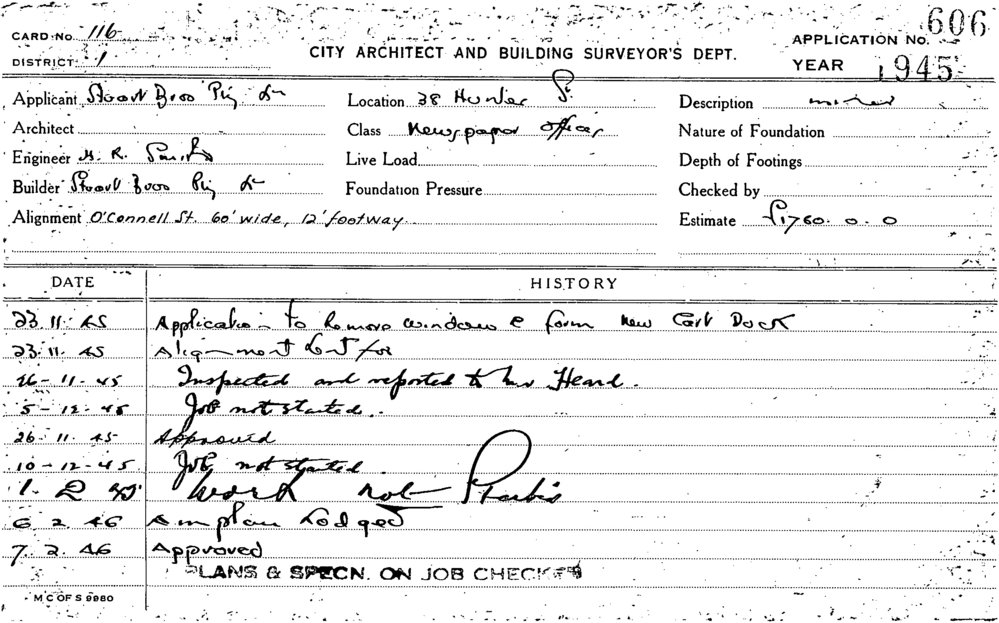 CARD NO. 116
DISTRICT 1
CITY ARCHITECT AND BUILDING SURVEYOR'S DEPT.
APPLICATION No. 606
YEAR 1945
Applicant Stuart Bros Pty
Location 38 Hunter St
Description
Architect
Class Newspaper Offices
Nature of Foundation
Engineer H. R. Smith
Live Load
Depth of Footings
Builder Stuart Bros Pty
Foundation Pressure
Checked by
Alignment O'Connell St. 60' wide, 12' footway.
Estimate £1760. 0. 0
DATE HISTORY
23. 11. 45 Application to Remove window & form new Cart Dock
23. 11. 45 Alignment for
26-11-45 Inspected and reported to Mr Heard.
5-12-45 Job not started.
26. 11. 45 Approved
10-12-45 Job not started
1. 2 Work not
6 2 46 Am plan Lodged
7. 2. 46 Approved
PLANS & SPECN. ON JOB CHECKED
M C OF S 9980